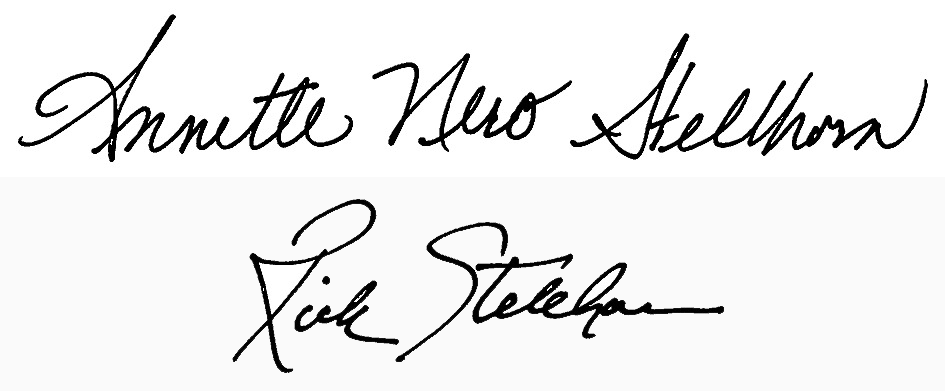 Annette Nero Stellhorn
Rick Stellhorn